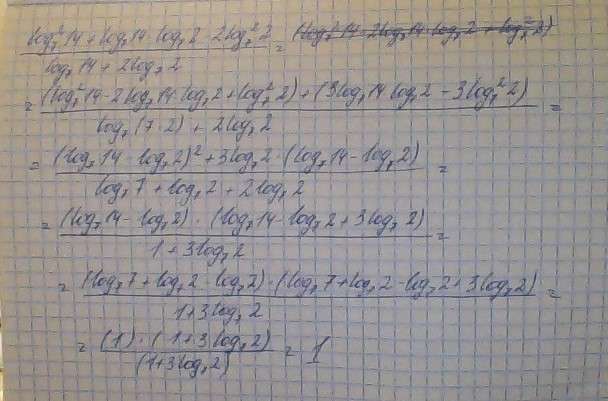 (log₇²14 + log₇14·log₇2 - 2log₇²2) / (log₇14 + 2log₇2) =
= ((log₇²14 - 2log₇14 log₇2 + log₇²2) + (3log₇14 log₇2 - 3log₇²2)) / (log₇(7·2) + 2log₇2) =
= ((log₇14 - log₇2)² + 3log₇2·(log₇14 - log₇2)) / (log₇7 + log₇2 + 2log₇2) =
= ((log₇14 - log₇2)·(log₇14 - log₇2 + 3log₇2)) / (1 + 3log₇2) =
= ((log₇7 + log₇2 - log₇2)·(log₇7 + log₇2 - log₇2 + 3log₇2)) / (1 + 3log₇2) =
= ((1)·(1 + 3log₇2)) / (1 + 3log₇2) = 1